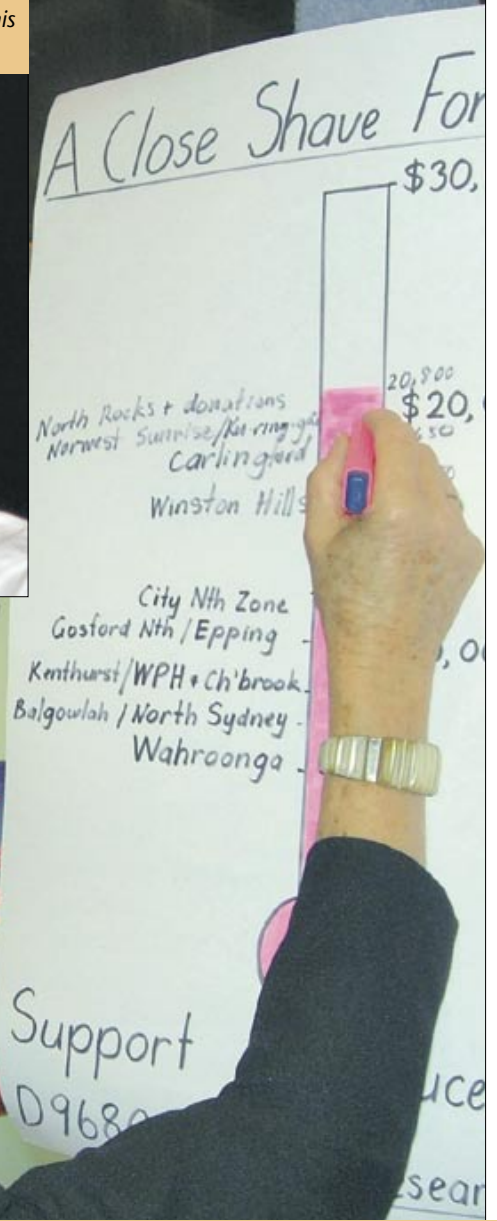 his
A Close Shave For
$30,
20,800
North Rocks + donations
$20,
Norwest Sunrise/Ku ring-gai
Carlingford
Winston Hills
City Nth Zone
Gosford Nth / Epping
, 00
Kenthurst/WPH + Ch'brook
Balgowlah / North Sydney
Wahroonga
Support
uce
D968
sear